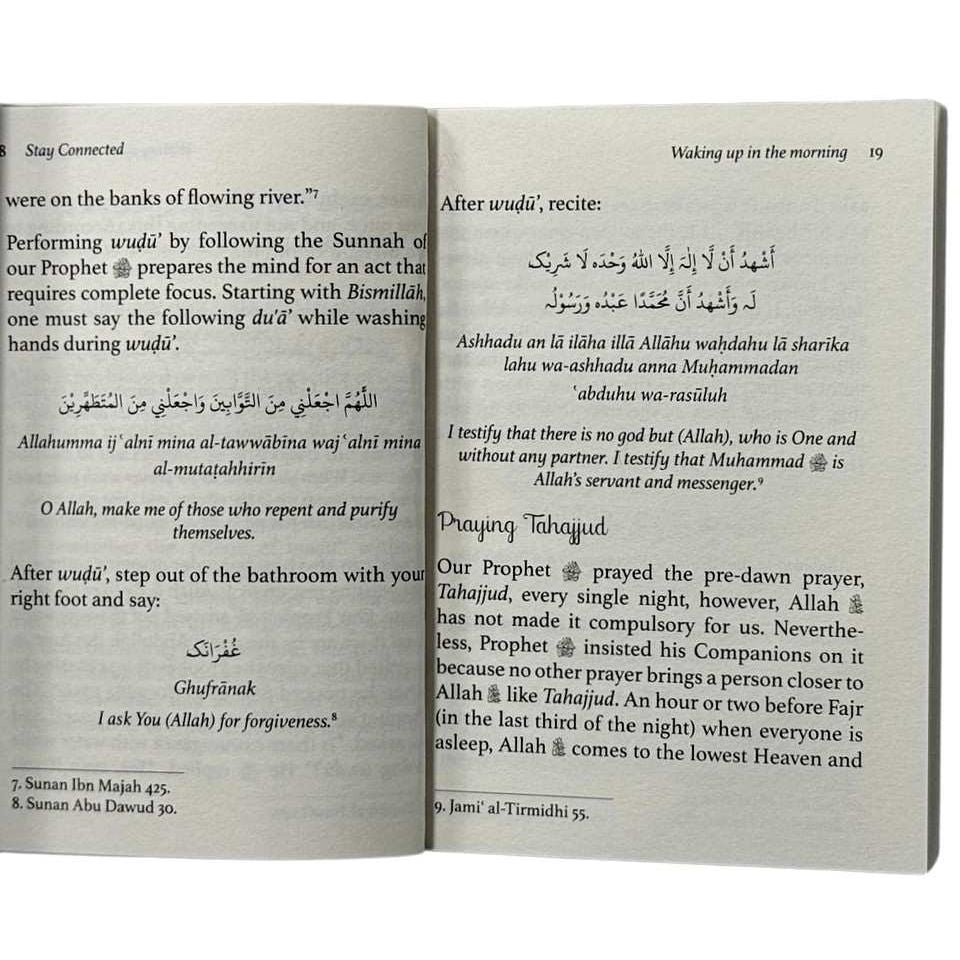 8 Stay Connected
were on the banks of flowing river.”⁷
Performing wuḍū’ by following the Sunnah of
our Prophet ﷺ prepares the mind for an act that
requires complete focus. Starting with Bismillāh,
one must say the following du'ā’ while washing
hands during wuḍū’.
اللّٰهُمَّ اجْعَلْنِي مِنَ التَّوَّابِينَ وَاجْعَلْنِي مِنَ المُتَطَهِّرِيْنَ
Allahumma ij ʿalnī mina al-tawwābīna waj ʿalnī mina
al-mutaṭahhirīn
O Allah, make me of those who repent and purify
themselves.
After wuḍū’, step out of the bathroom with your
right foot and say:
غُفْرَانَک
Ghufrānak
I ask You (Allah) for forgiveness.⁸
7. Sunan Ibn Majah 425.
8. Sunan Abu Dawud 30.
Waking up in the morning 19
After wuḍū’, recite:
أَشْهدُ أَنْ لَّا إِلٰہَ إِلَّا اللهُ وَحْدَه لَا شَرِيْک
لَه وَأَشْهدُ أَنَّ مُحَمَّدًا عَبْدُه وَرَسُوْلُه
Ashhadu an lā ilāha illā Allāhu waḥdahu lā sharīka
lahu wa-ashhadu anna Muḥammadan
ʿabduhu wa-rasūluh
I testify that there is no god but (Allah), who is One and
without any partner. I testify that Muhammad ﷺ is
Allah’s servant and messenger.⁹
Praying Tahajjud
Our Prophet ﷺ prayed the pre-dawn prayer,
Tahajjud, every single night, however, Allah ﷻ
has not made it compulsory for us. Neverthe-
less, Prophet ﷺ insisted his Companions on it
because no other prayer brings a person closer to
Allah ﷻ like Tahajjud. An hour or two before Fajr
(in the last third of the night) when everyone is
asleep, Allah ﷻ comes to the lowest Heaven and
9. Jamiʿ al-Tirmidhi 55.